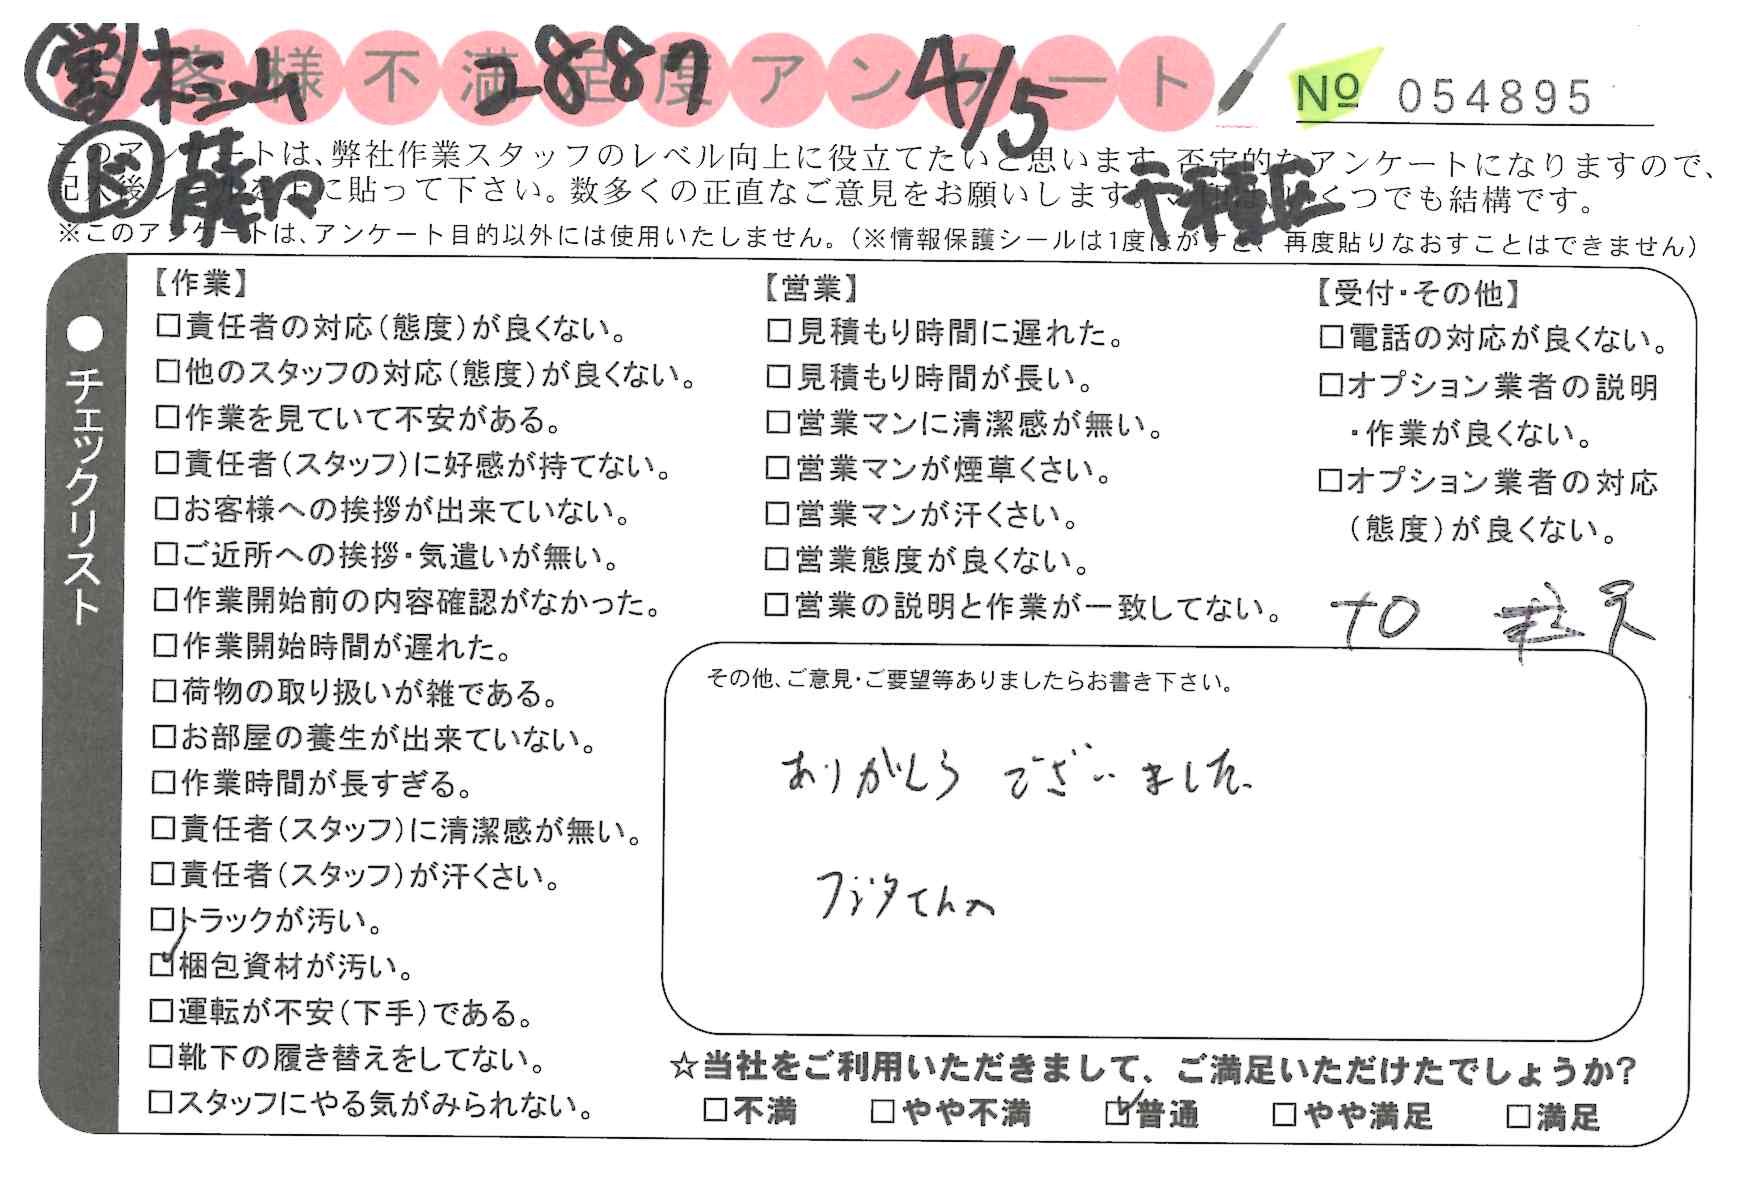 営 杉山 2887 4/5
お客様不満足度アンケート
№ 054895
ド 藤口 千種区
このアンケートは、弊社作業スタッフのレベル向上に役立てたいと思います。否定的なアンケートになりますので、
記入後シールを上に貼って下さい。数多くの正直なご意見をお願いします。いくつでも結構です。
※このアンケートは、アンケート目的以外には使用いたしません。(※情報保護シールは1度はがすと、再度貼りなおすことはできません)
●チェックリスト
【作業】
□責任者の対応(態度)が良くない。
□他のスタッフの対応(態度)が良くない。
□作業を見ていて不安がある。
□責任者(スタッフ)に好感が持てない。
□お客様への挨拶が出来ていない。
□ご近所への挨拶・気遣いが無い。
□作業開始前の内容確認がなかった。
□作業開始時間が遅れた。
□荷物の取り扱いが雑である。
□お部屋の養生が出来ていない。
□作業時間が長すぎる。
□責任者(スタッフ)に清潔感が無い。
□責任者(スタッフ)が汗くさい。
□トラックが汚い。
☑梱包資材が汚い。
□運転が不安(下手)である。
□靴下の履き替えをしてない。
□スタッフにやる気がみられない。
【営業】
□見積もり時間に遅れた。
□見積もり時間が長い。
□営業マンに清潔感が無い。
□営業マンが煙草くさい。
□営業マンが汗くさい。
□営業態度が良くない。
□営業の説明と作業が一致してない。
【受付・その他】
□電話の対応が良くない。
□オプション業者の説明
・作業が良くない。
□オプション業者の対応
(態度)が良くない。
TO
その他、ご意見・ご要望等ありましたらお書き下さい。
ありがとう ございました
☆当社をご利用いただきまして、ご満足いただけたでしょうか?
□不満 □やや不満 ☑普通 □やや満足 □満足